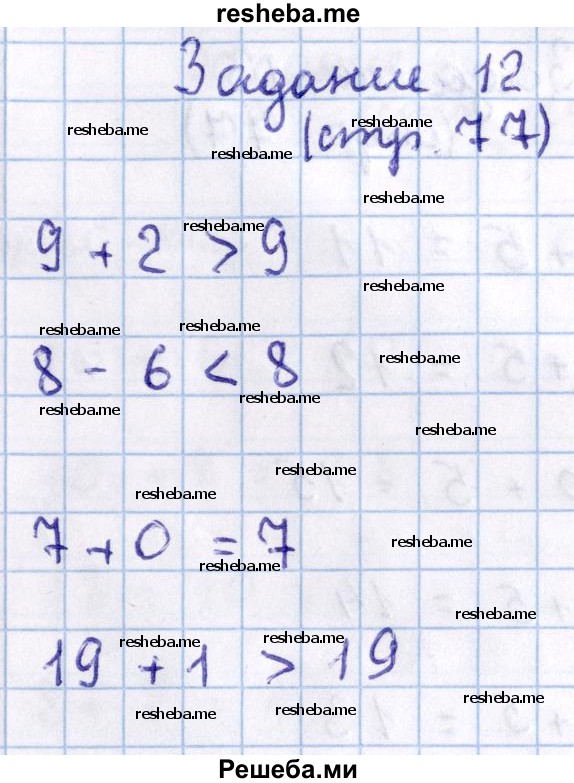 resheba.me
Задание 12
resheba.me resheba.me
resheba.me (стр. 77)
resheba.me
resheba.me
9 + 2 > 9
resheba.me
resheba.me resheba.me
8 - 6 < 8 resheba.me
resheba.me resheba.me
resheba.me
resheba.me
resheba.me
7 + 0 = 7 resheba.me
resheba.me
resheba.me
resheba.me resheba.me
19 + 1 > 19
resheba.me resheba.me resheba.me
Решеба.ми